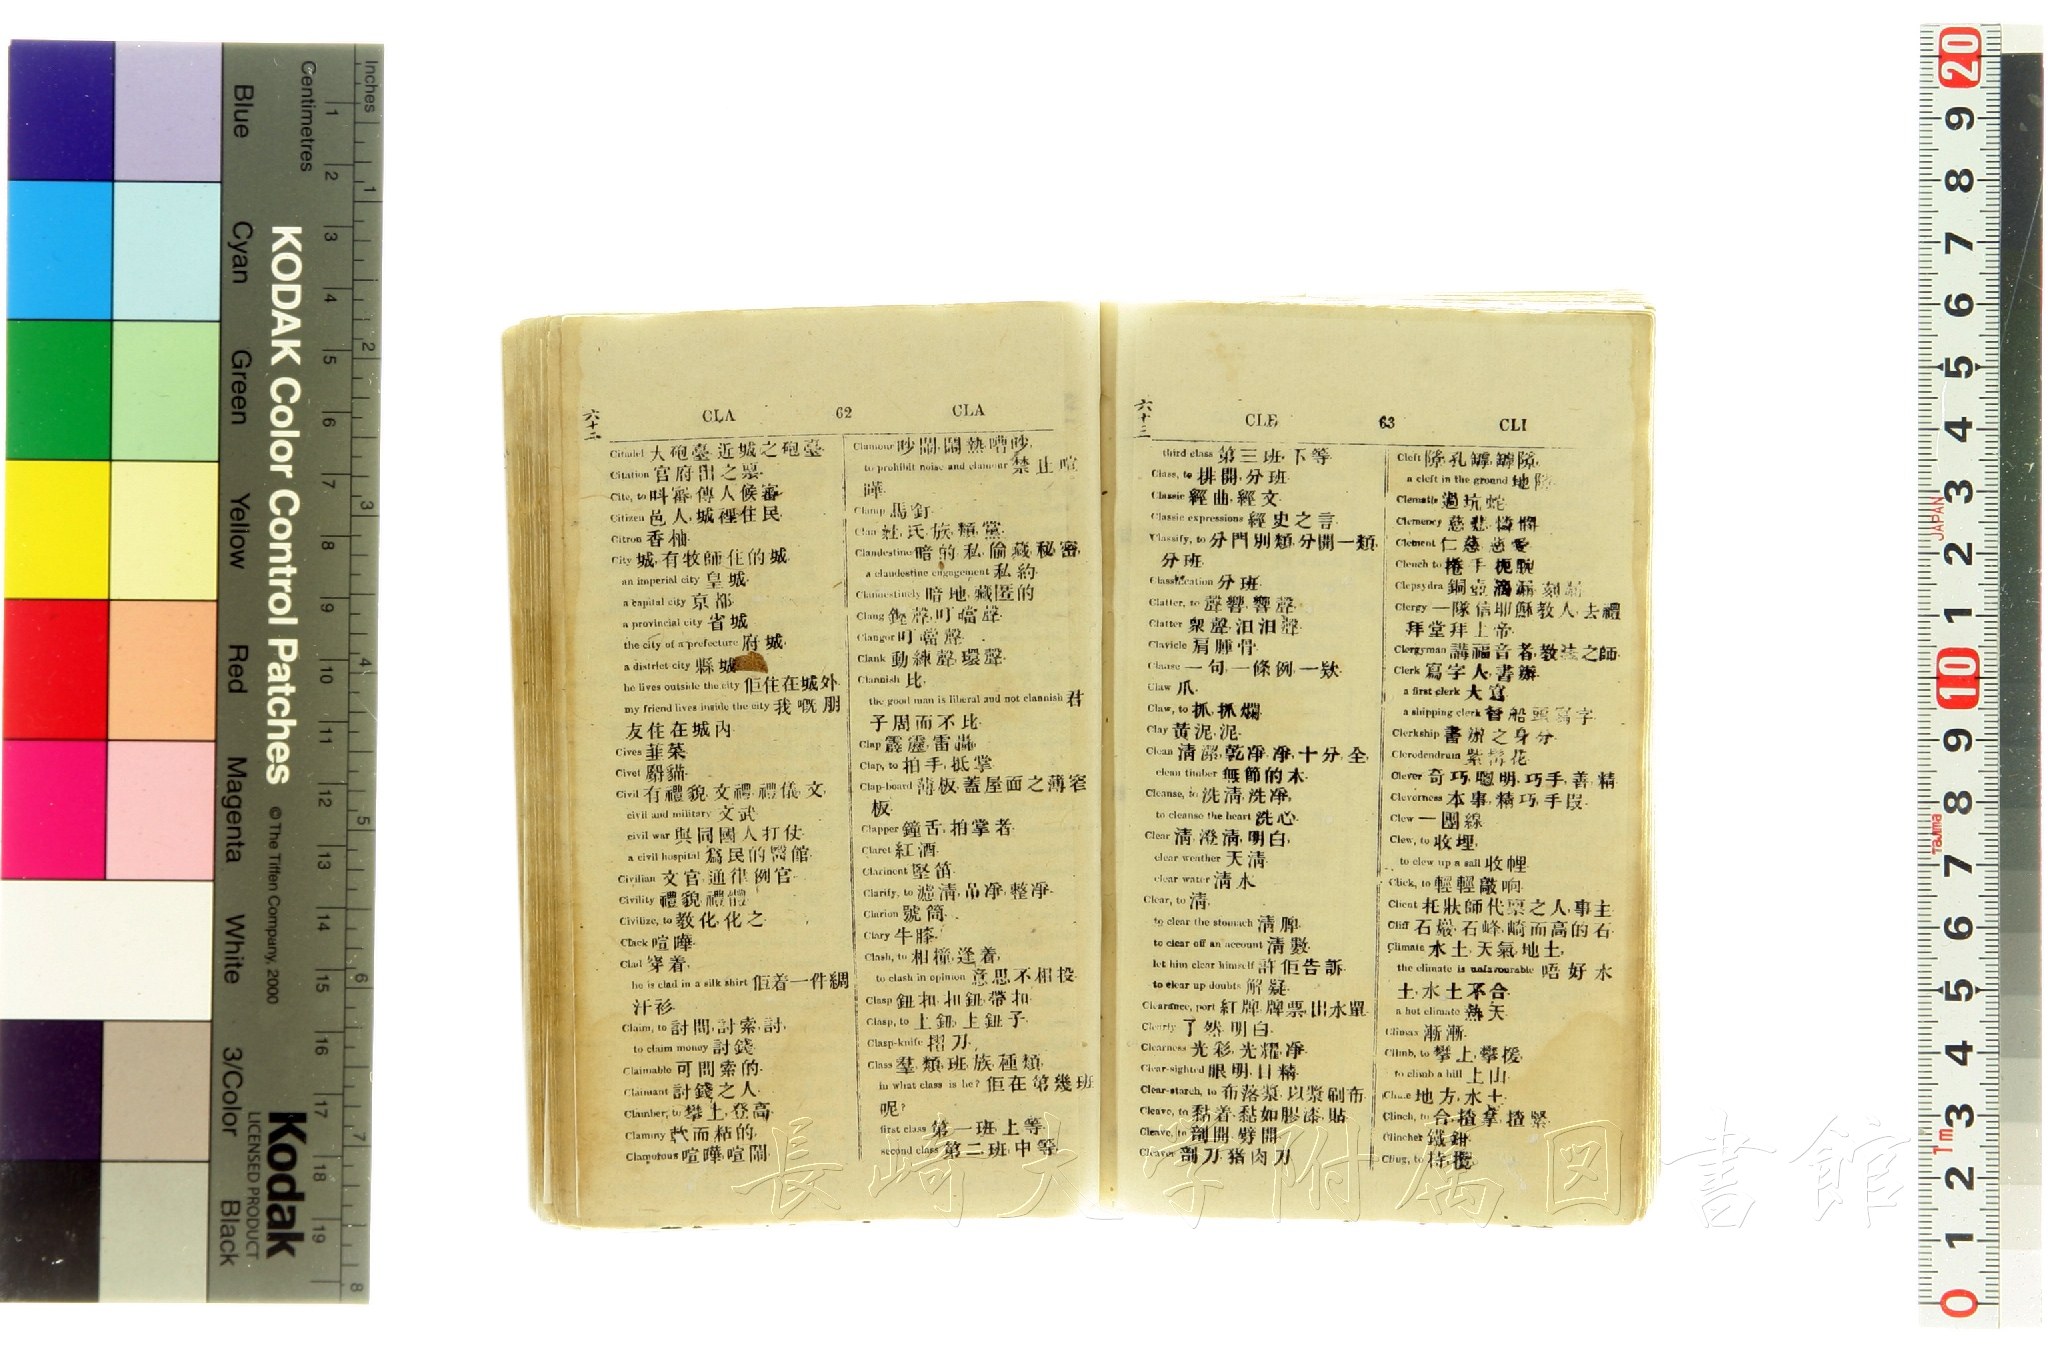 Inches
Centimetres
KODAK Color Control Patches
© The Tiffen Company, 2000
Kodak
LICENSED PRODUCT
Blue
Cyan
Green
Yellow
Red
Magenta
White
3/Color
Black
六十二
CLA 62 CLA
Citadel 大砲臺, 近城之砲臺
Citation 官府出之票
Cite, to 呌審, 傳人候審
Citizen 邑人, 城裡住民
Citron 香柚
City 城, 有牧師住的城
an imperial city 皇城
a capital city 京都
a provincial city 省城
the city of a prefecture 府城
a district city 縣城
he lives outside the city 佢住在城外
my friend lives inside the city 我嘅朋
友住在城內
Cives 韮菜
Civet 麝貓
Civil 有禮貌, 文禮, 禮儀, 文
civil and military 文武
civil war 與同國人打仗
a civil hospital 爲民的醫館
Civilian 文官, 通律例官
Civility 禮貌, 禮體
Civilize, to 教化, 化之
Clack 喧嘩
Clad 穿着
he is clad in a silk shirt 佢着一件綢
汗衫
Claim, to 討問, 討索, 討
to claim money 討錢
Claimable 可問索的
Claimant 討錢之人
Clamber, to 攀上, 登高
Clammy 軟而粘的
Clamorous 喧嘩, 喧鬧
Clamour 吵鬧, 鬧熱, 嘈吵
to prohibit noise and clamour 禁止喧
嘩
Clamp 馬釘
Clan 姓, 氏, 族, 類, 黨
Clandestine 暗的, 私, 偷藏, 秘密
a clandestine engagement 私約
Clandestinely 暗地, 藏匿的
Clang 鐘聲, 叮噹聲
Clangor 叮噹聲
Clank 動練聲, 環聲
Clannish 比
the good man is liberal and not clannish 君
子周而不比
Clap 霹靂, 雷轟
Clap, to 拍手, 抵掌
Clap-board 薄板, 蓋屋面之薄窄
板
Clapper 鐘舌, 拍掌者
Claret 紅酒
Clarinent 堅笛
Clarify, to 濾清, 吊凈, 整凈
Clarion 號筒
Clary 牛膝
Clash, to 相撞, 逢着
to clash in opinion 意思不相投
Clasp 鈕扣, 扣鈕, 帶扣
Clasp, to 上鈕, 上鈕子
Clasp-knife 摺刀
Class 羣, 類, 班, 族, 種類
in what class is he? 佢在第幾班
呢?
first class 第一班, 上等
second class 第二班, 中等
六十三
CLE 63 CLI
third class 第三班, 下等
Class, to 排開, 分班
Classic 經典, 經文
Classic expressions 經史之言
Classify, to 分門別類, 分開一類
分班
Classification 分班
Clatter, to 聲響, 響聲
Clatter 衆聲, 汨汨聲
Clavicle 肩膊骨
Clause 一句, 一條例, 一欵
Claw 爪
Claw, to 抓, 抓爛
Clay 黃泥, 泥
Clean 清潔, 乾凈, 凈, 十分, 全
clean timber 無節的木
Cleanse, to 洗清, 洗凈
to cleanse the heart 洗心
Clear 清, 澄清, 明白
clear weather 天清
clear water 清水
Clear, to 清
to clear the stomach 清脾
to clear off an account 清數
let him clear himself 許佢告訴
to clear up doubts 解疑
Clearance, port 紅牌, 牌票, 出水單
Clearly 了然, 明白
Clearness 光彩, 光耀, 凈
Clear-sighted 眼明, 目精
Clear-starch, to 布落漿, 以漿刷布
Cleave, to 黏着, 黏如膠漆, 貼
Cleave, to 剖開, 劈開
Cleaver 剖刀, 豬肉刀
Cleft 隙, 孔, 罅, 罅隙
a cleft in the ground 地隙
Clematis 過坑蛇
Clemency 慈悲, 憐憫
Clement 仁慈, 慈愛
Clench to 捲手, 扼腕
Clepsydra 銅壺滴漏, 刻漏
Clergy 一隊信耶穌教人, 去禮
拜堂拜上帝
Clergyman 講福音者, 教法之師
Clerk 寫字人, 書辦
a first clerk 大寫
a shipping clerk 管船頭寫字
Clerkship 書辦之身分
Clerodendrum 紫髯花
Clever 奇巧, 聰明, 巧手, 善, 精
Cleverness 本事, 精巧, 手段
Clew 一團線
Clew, to 收埋
to clew up a sail 收𢃇
Click, to 輕輕敲响
Client 托狀師代稟之人, 事主
Cliff 石巖, 石峰, 崎而高的石
Climate 水土, 天氣, 地土
the climate is unfavourable 唔好水
土, 水土不合
a hot climate 熱天
Climax 漸漸
Climb, to 攀上, 攀援
to climb a hill 上山
Clime 地方, 水土
Clinch, to 合揸拿, 揸緊
Clincher 鐵鉗
Cling, to 持攬
長崎大学附属図書館
JAPAN
Tajima